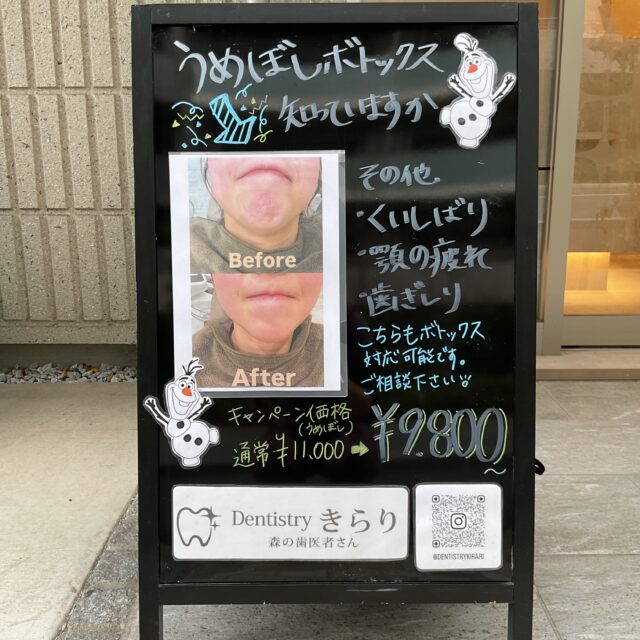 うめぼしボトックス
知っていますか
Before
After
その他
・くいしばり
・顎の疲れ
・歯ぎしり
こちらもボトックス
対応可能です。
ご相談下さい
キャンペーン価格
(うめぼし)
通常¥11,000 ➡ ¥9.800〜
Dentistry きらり
森の歯医者さん
@DENTISTRYKIRARI